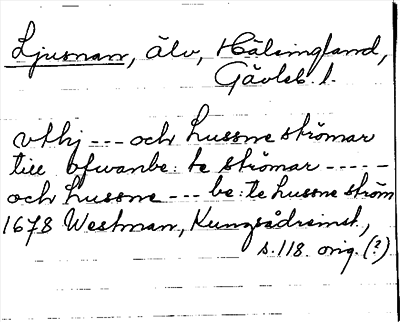 Ljusnan, älv, Hälsingland,
Gävleb. l.
vthj --- och Hussne strömar
till ofwanbe: te strömar -----
och Hussne --- be: te Hussne ström
1678 Westman, Kungsådreinst.,
s. 118. orig. (?)